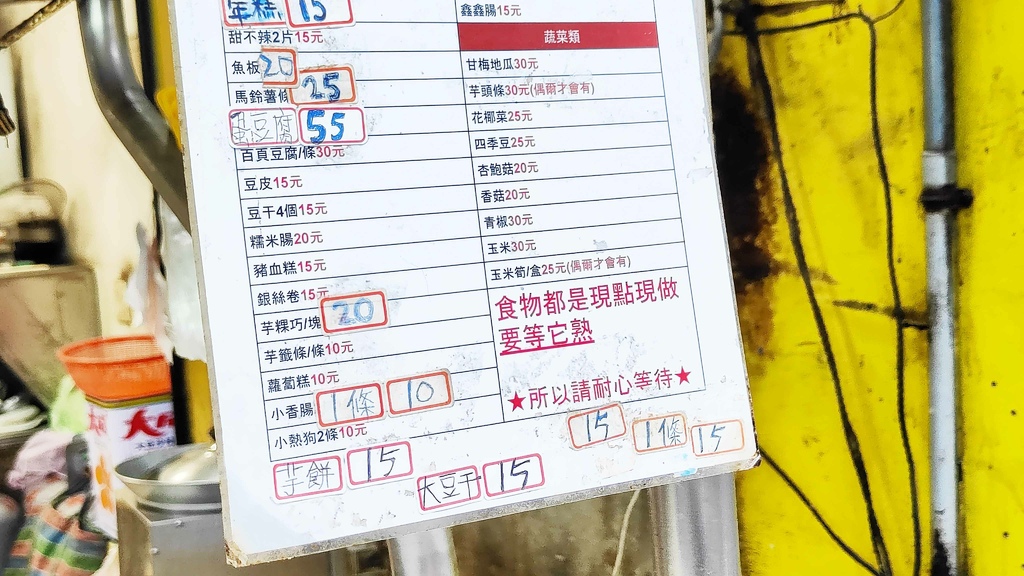 年糕 15
甜不辣2片15元
魚板 20
馬鈴薯條 25
豆腐 55
百頁豆腐/條30元
豆皮15元
豆干4個15元
糯米腸20元
豬血糕15元
銀絲卷15元
芋粿巧/塊 20
芋籤條/條10元
蘿蔔糕10元
小香腸 1條 10
小熱狗2條10元
芋餅 15
大豆干 15
鑫鑫腸15元
蔬菜類
甘梅地瓜30元
芋頭條30元(偶爾才會有)
花椰菜25元
四季豆25元
杏鮑菇20元
香菇20元
青椒30元
玉米30元
玉米筍/盒25元(偶爾才會有)
食物都是現點現做
要等它熟
★所以請耐心等待★
15 1條 15